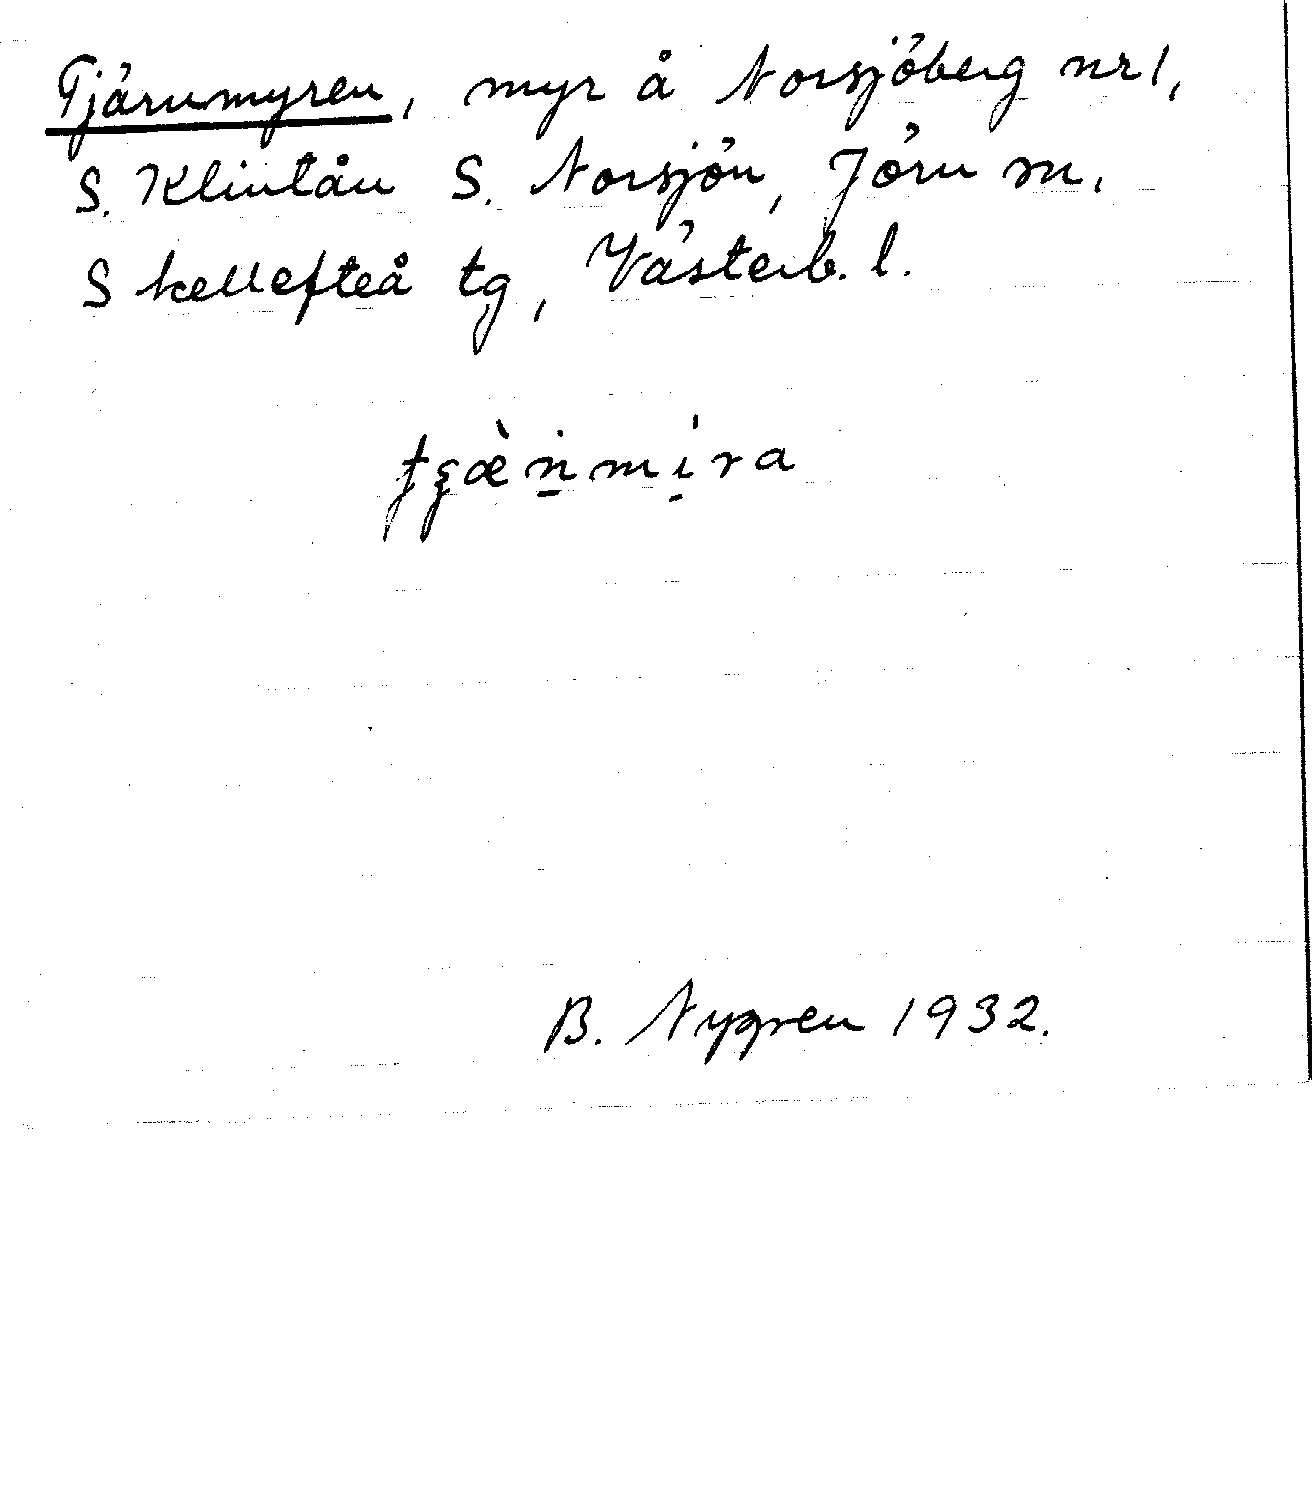 Tjärnmyren, myr å Norsjöberg nr 1,
S. Klintån S. Norsjön, Jörn sn,
Skellefteå tg, Västerb. l.
B. Nygren 1932.